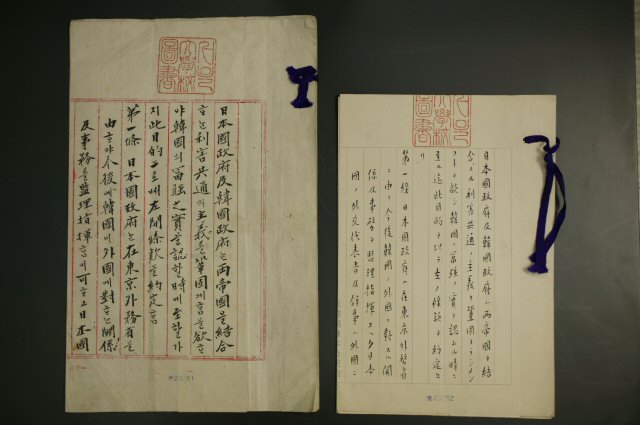 日本國政府及韓國政府と兩帝國을結合
하と利害共通의主義를鞏固케함을欲하
야韓國의富强之實을認할時에至할가
지此目的으로써左開條款을約定함
第一條 日本國政府と在東京外務省을
由하야今後에韓國이外國에對하と關係
及事務를監理指揮함이可하고日本國
23051
日本國政府及韓國政府ハ兩帝國ヲ結
合スル利害共通ノ主義ヲ鞏固ナラシメン
コトヲ欲シ韓國ノ富强ノ實ヲ認ムル時ニ
至ル迄此目的ヲ以テ左ノ條款ヲ約定セ
リ
第一條 日本國政府ハ在東京外務省
ニ由リ今後韓國ノ外國ニ對スル關
係及事務ヲ監理指揮スヘク日本
國ノ外交代表者及領事ハ外國ニ
23052